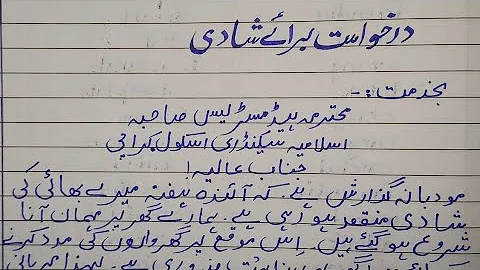 درخواست برائے شادی
بخدمت:-
محترمہ ہیڈ مسٹریس صاحبہ
اسلامیہ سیکنڈری اسکول کراچی
جناب عالیہ!
مودبانہ گزارش ہے کہ آئندہ ہفتہ میرے بھائی کی
شادی منعقد ہو رہی ہے۔ ہمارے گھر پر مہمان آنا
شروع ہو گئے ہیں۔ اس موقع پر گھر والوں کی مدد کرنے
ضروری ہے۔ لہذا مہربانی